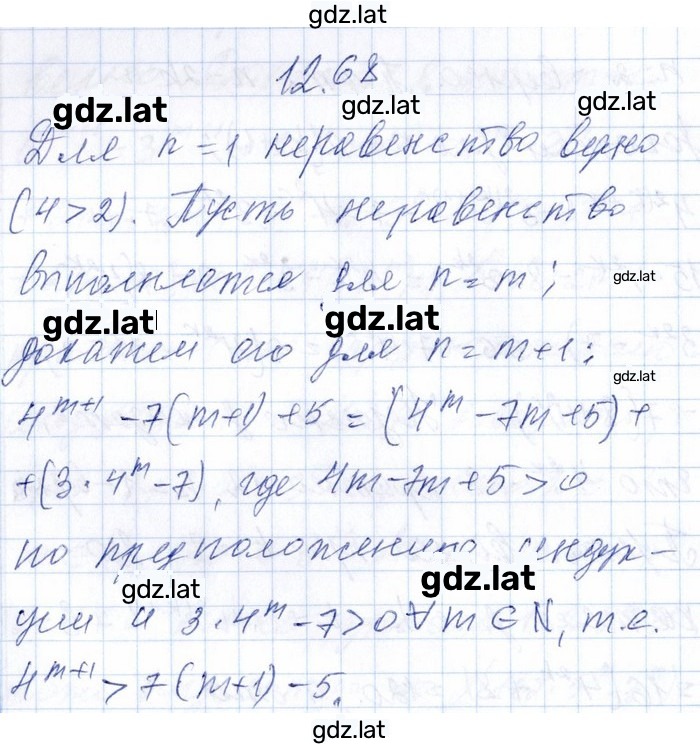 gdz.lat
12.68
gdz.lat gdz.lat gdz.lat
Для n = 1 неравенство верно
(4 > 2). Пусть неравенство
выполняется для n = m;
gdz.lat
gdz.lat gdz.lat
докажем его для n = m+1:
gdz.lat
4^{m+1} - 7(m+1) + 5 = (4^m - 7m + 5) +
+ (3 · 4^m - 7), где 4m - 7m + 5 > 0
по предположению индук-
gdz.lat gdz.lat
ции и 3 · 4^m - 7 > 0 ∀ m ∈ N, т.е.
gdz.lat
4^{m+1} > 7(m+1) - 5.
gdz.lat